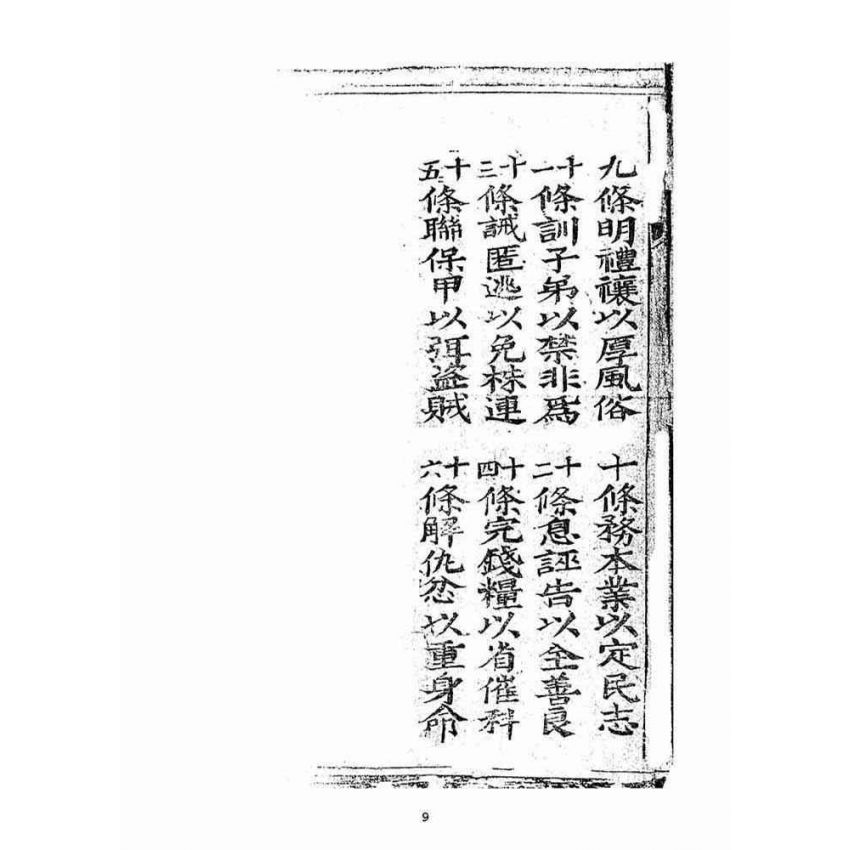 九條明禮禳以厚風俗 十條務本業以定民志
十一條訓子弟以禁非爲 十二條息誣告以全善良
十三條誡匿逃以免株連 十四條完錢糧以省催科
十五條聯保甲以弭盗賊 十六條解仇忿以重身命
9